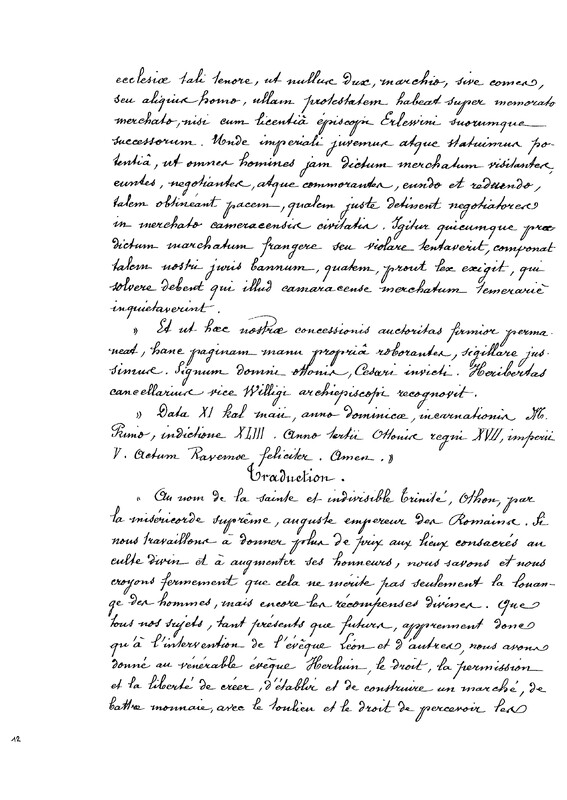 ecclesiæ tali tenore, ut nullus dux, marchio, sive comes,
seu aliquis homo, ullam protestatem habeat super memorato
merchato, nisi cum licentiâ épiscopi Erlewini suorumque
successorum. Unde imperiali juvemus atque statuimus po-
tentiâ, ut omnes homines jam dictum merchatum visitantes,
euntes, negotiantes, atque commorantes, eundo et redeundo,
talem obtineant pacem, qualem juste detinent negotiatores
in merchato cameracensis civitatis. Igitur quicumque præ
dictum marchatum frangere seu violare tentaverit, componat
talem nostri juris bannum, quatem, prout lex exigit, qui
solvere debent qui illud camaracense merchatum temerariè
inquietaverint.
» Et ut hæc nostræ concessionis auctoritas firmior perma-
neat, hanc paginam manu propriâ roborantes, sigillare jus-
simus. Signum domni Ottonis, Cesari invicti. Heribertas
cancellarius vice Willigi archiepiscopi recognovit.
» Data XI kal maii, anno dominicæ, incarnationis M.
Primo, indictione XLIII. Anno tertii Ottonis regni XVII, imperii
V. Actum Ravennæ feliciter. Amen. »
Traduction.
« Au nom de la sainte et indivisible Trinité, Othon, par
la miséricorde suprême, auguste empereur des Romains. Si
nous travaillons à donner plus de prix aux lieux consacrés au
culte divin et à augmenter ses honneurs, nous savons et nous
croyons fermement que cela ne mérite pas seulement la louan-
ge des hommes, mais encore les récompenses divines. Que
tous nos sujets, tant présents que futurs, apprennent donc
qu'à l'intervention de l'évêque Léon et d'autres, nous avons
donné au vénérable évêque Herluin, le droit, la permission
et la liberté de créer, d'établir et de construire un marché, de
battre monnaie, avec le tonlieu et le droit de percevoir les
12